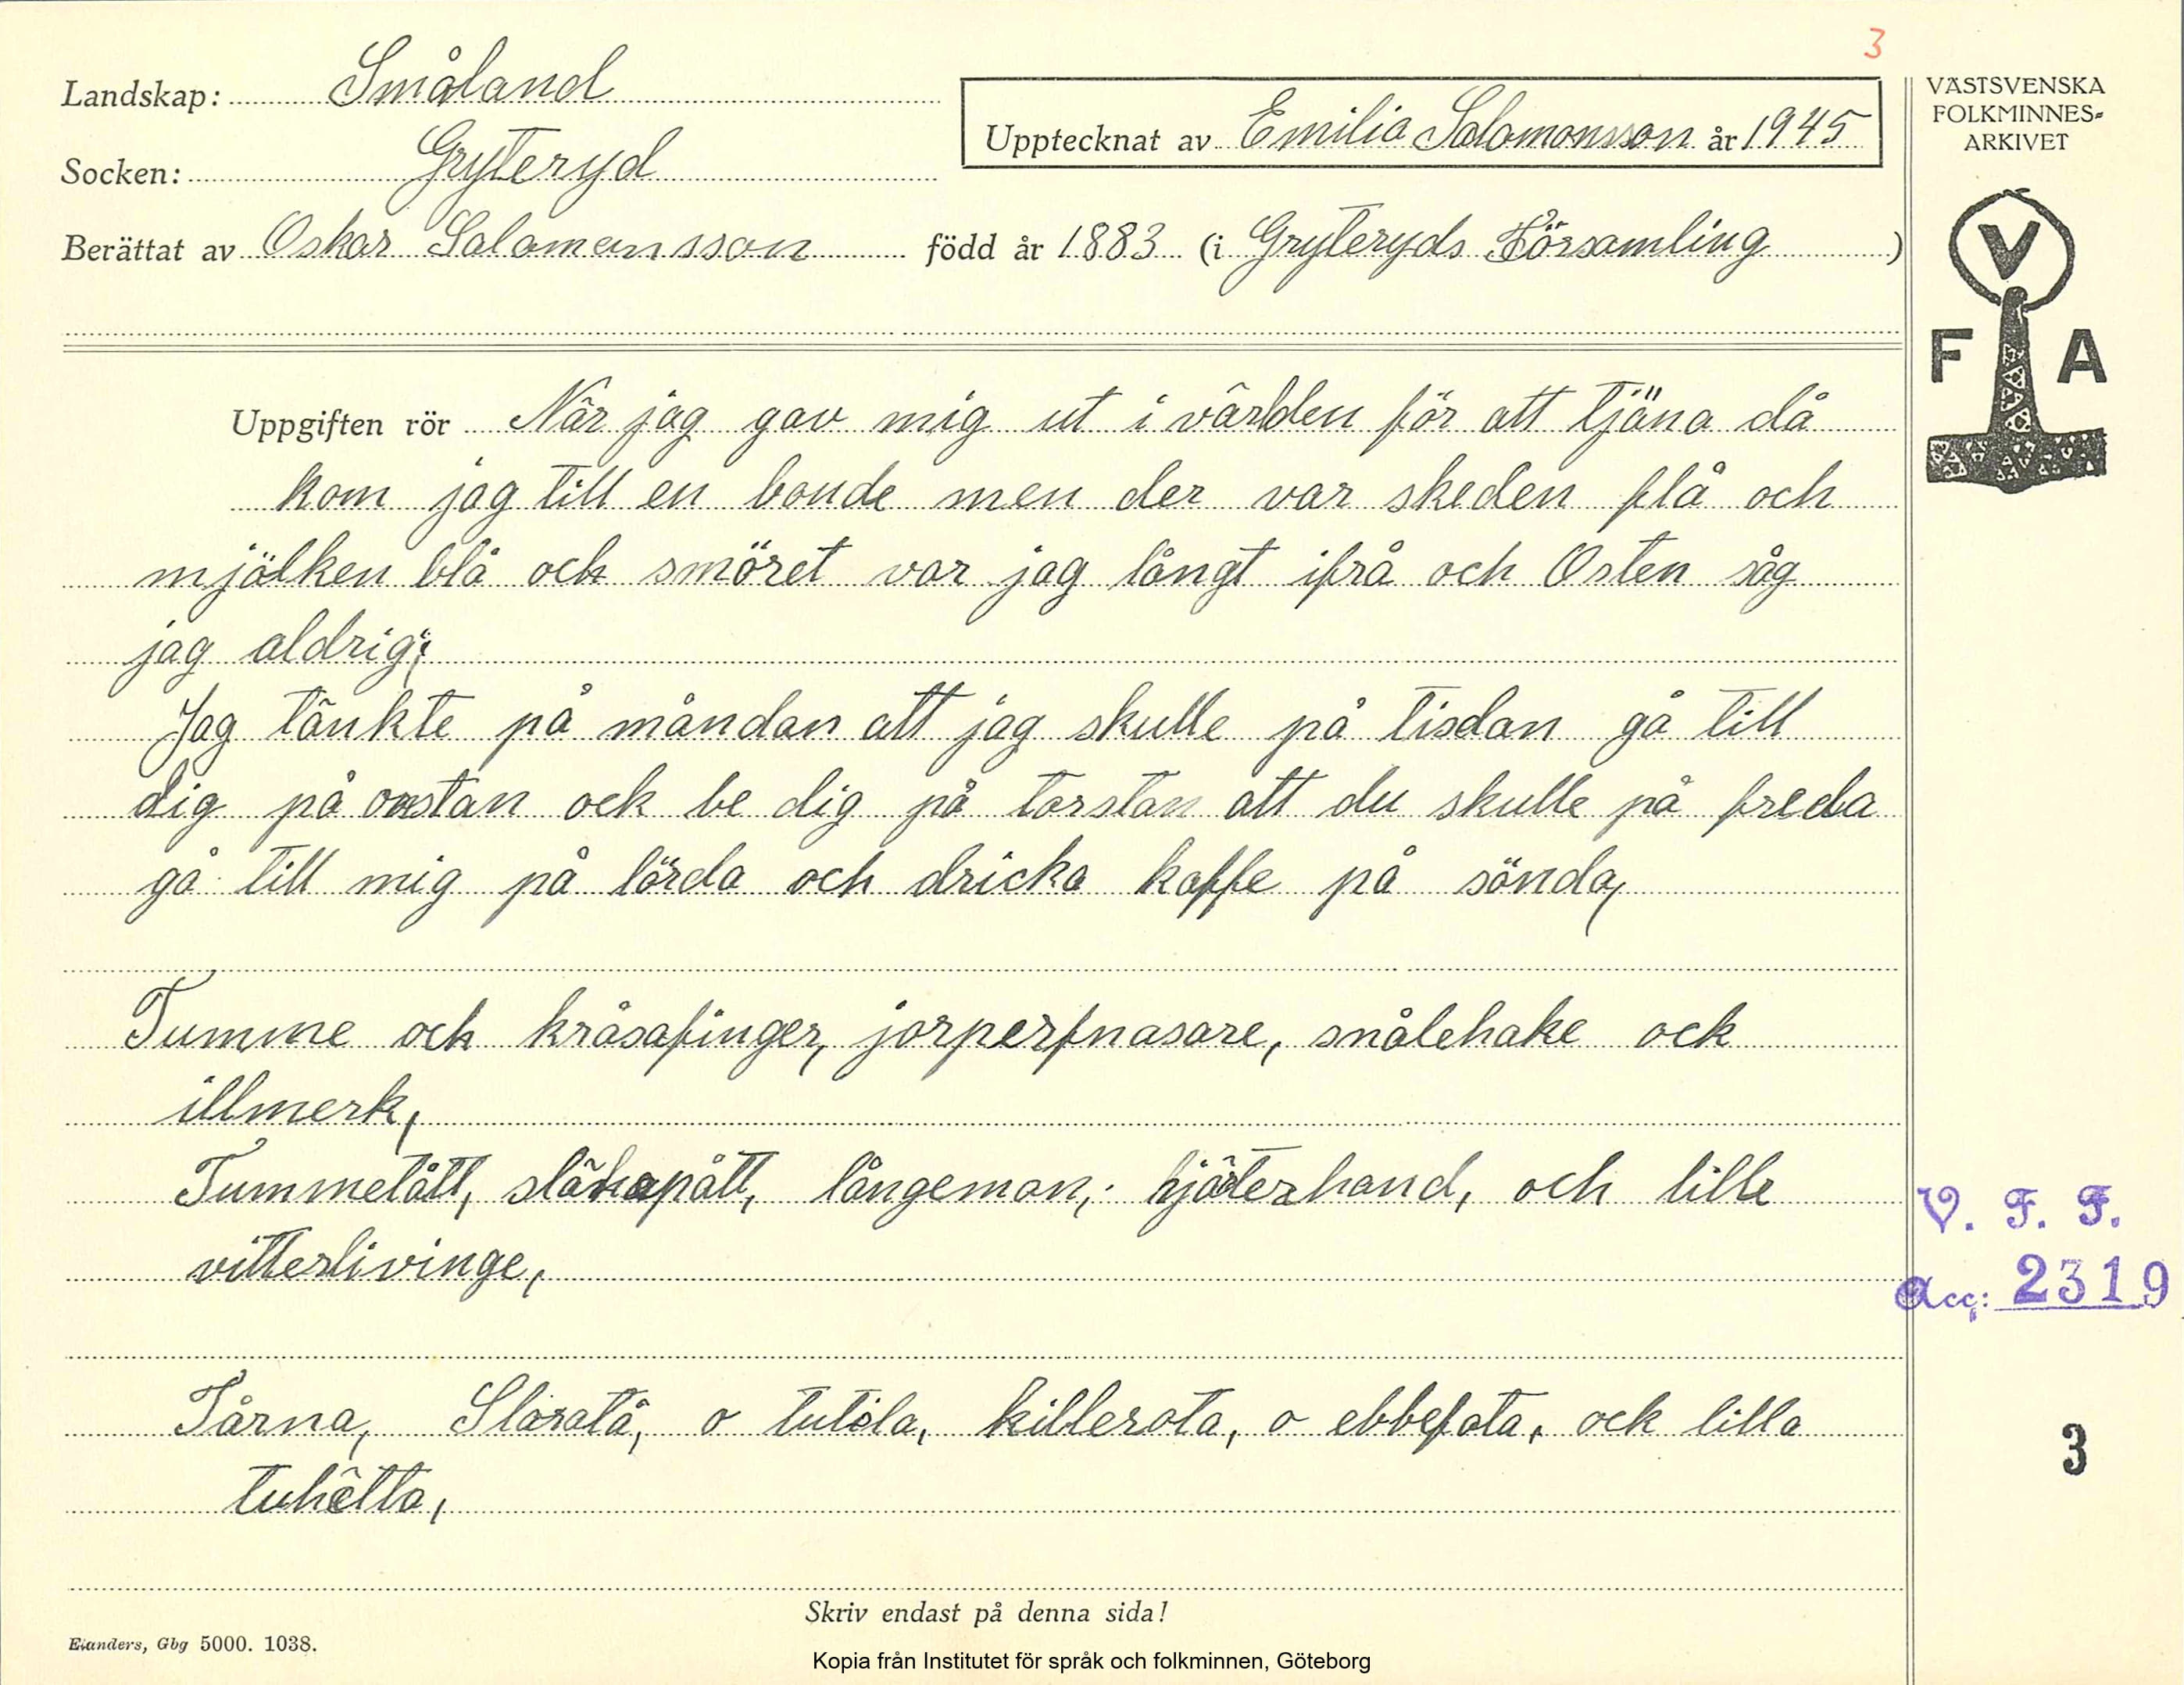 3
Landskap: Småland
Upptecknat av Emilia Salomonsson år 1945
Socken: Gryteryd
Berättat av Oskar Salomonsson född år 1883 (i Gryteryds Församling )
VÄSTSVENSKA
FOLKMINNES=
ARKIVET
V
F A
Uppgiften rör När jag gav mig ut i världen för att tjäna då
kom jag till en bonde men der var skeden flå och
mjölken blå och smöret var jag långt ifrå och Osten såg
jag aldrig;
Jag tänkte på måndan att jag skulle på tisdan gå till
dig på onstan ock be dig på torstan att du skulle på freda
gå till mig på lörda och dricka kaffe på sönda,
Tumme och kråsafinger, jorperfnasare, snålehake ock
illmerk,
Tummetått, långeman, hjäterhand, och lille
vitterlivinge,
V. F. F.
Acc: 2319
Tårna, Slaratå, o tutila, killerota, o ebbefota, ock lilla
tuhätta,
3
Skriv endast på denna sida!
Elanders, Gbg 5000. 1038.
Kopia från Institutet för språk och folkminnen, Göteborg